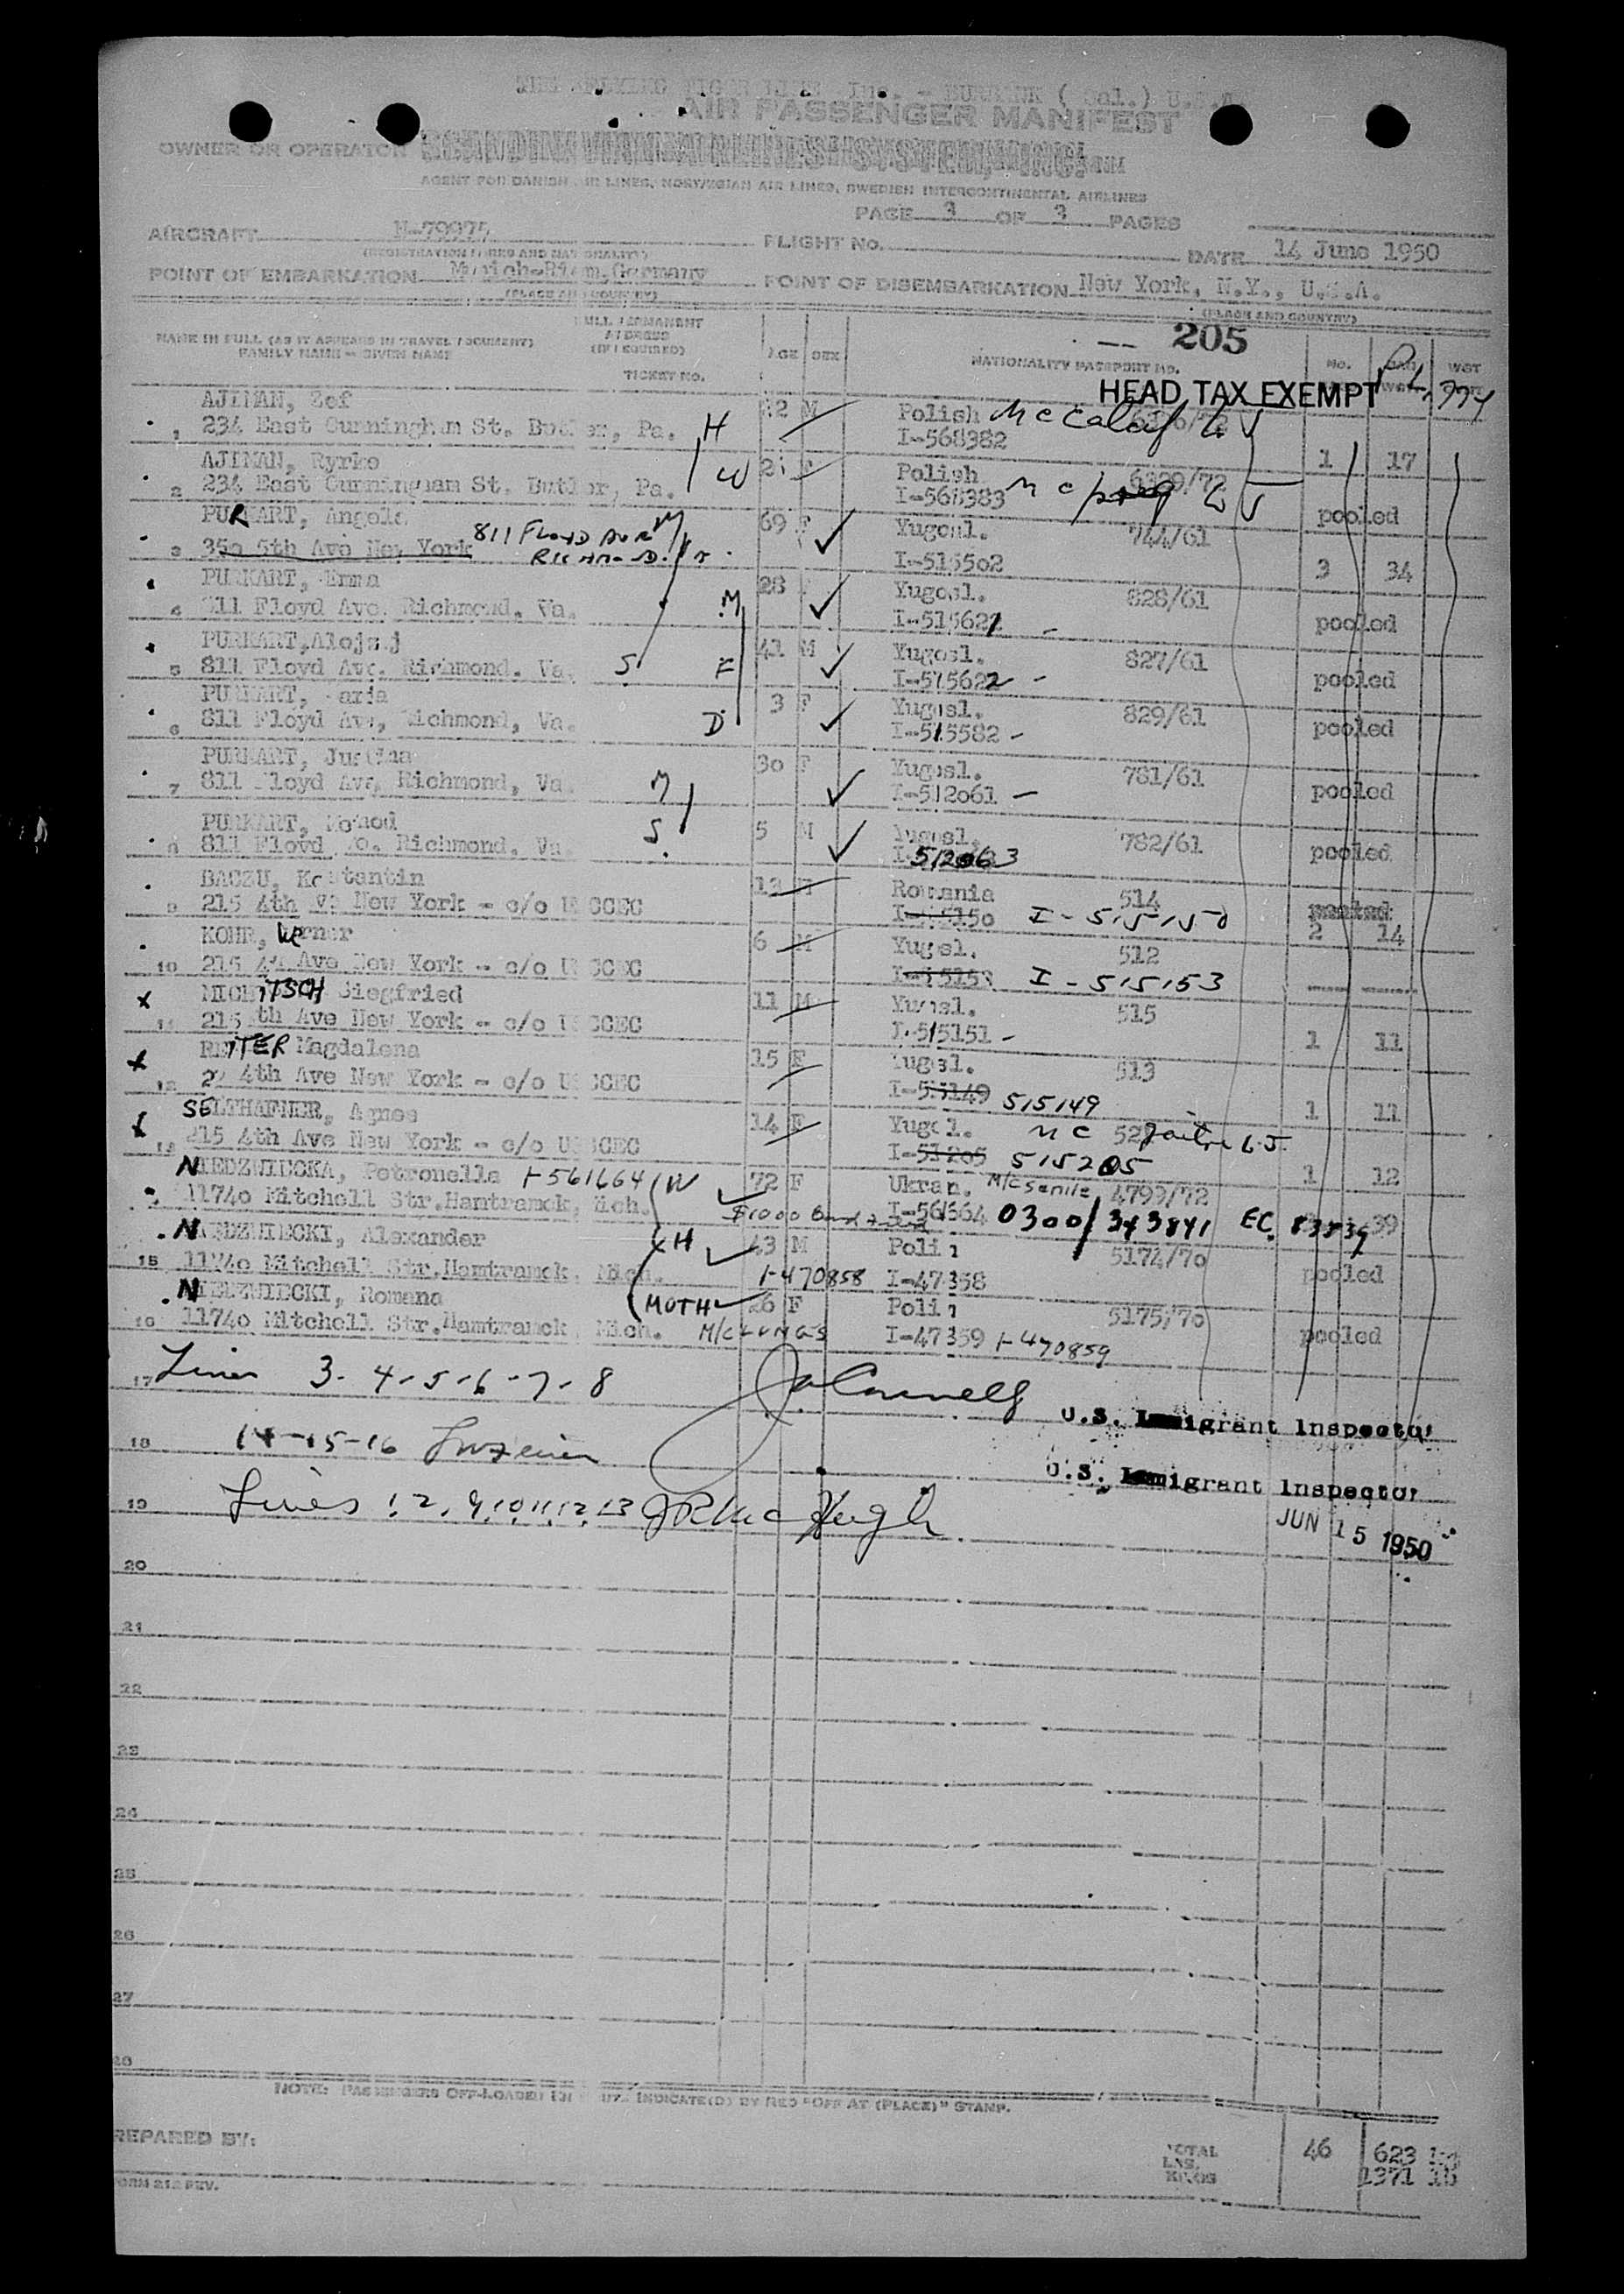 Inc. - BURBANK ( Cal.) U.S.A
AIR PASSENGER MANIFEST
OWNER OR OPERATOR
AGENT FOR DANISH AIR LINES, NORWEGIAN AIR LINES, SWEDISH INTERCONTINENTAL AIRLINES
PAGE 3 OF 3 PAGES
AIRCRAFT FLIGHT No. DATE 14 June 1950
(REGISTRATION MARKS AND NATIONALITY)
POINT OF EMBARKATION Munich-Riem, Germany POINT OF DISEMBARKATION New York, N.Y., U.S.A.
(PLACE AND COUNTRY) (PLACE AND COUNTRY)
205
NAME IN FULL (AS IT APPEARS IN TRAVEL DOCUMENT) FULL PERMANENT ADDRESS (IF REQUIRED) AGE SEX NATIONALITY PASSPORT NO. No. WGT
FAMILY NAME - GIVEN NAME TICKET No.
HEAD TAX EXEMPT
AJIMAN, Zef M Polish
1 234 East Cunningham St. Butler, Pa. H I-568382 1 17
AJIMAN, Ryrko Polish
2 234 East Cunningham St. Butler, Pa. W I-568383 pooled
PURKART, Angela 811 FLOYD AVE M 69 F Yugosl. 744/61
3 350 5th Ave New York I-515502 3 34
PURKART, Emma 28 F Yugosl. 828/61
4 811 Floyd Ave. Richmond. Va. M I-515621 pooled
PURKART, Alojsij 41 M Yugosl. 827/61
5 811 Floyd Ave. Richmond. Va. S F I-515622 pooled
PURKART, Maria 3 F Yugosl. 829/61
6 811 Floyd Ave, Richmond, Va. D I-515582 pooled
PURKART, Justina 30 F Yugosl. 781/61
7 811 Floyd Ave, Richmond, Va. M I-512061 pooled
PURKART, 5 M Yugosl. 782/61
8 811 Floyd Richmond. Va. S 512063 pooled
BACZU, Konstantin 13 M Romania 514
9 215 4th Ave New York - c/o USCCEC I-515150 2 14
KOHR, Werner 6 M Yugosl. 512
10 215 4th Ave New York - c/o USCCEC I-515153
MICHITSCH Siegfried 11 M Yugosl. 515
11 215 4th Ave New York - c/o USCCEC I-515151 1 11
REITER Magdalena 15 F Yugosl. 513
12 4th Ave New York - c/o USCCEC 515149 1 11
SELTHAFNER, Agnes 14 F Yugosl.
13 215 4th Ave New York - c/o USCCEC 515205 1 12
NIEDZWIECKA, Petronella I-561664 W 72 F Ukran. M/C senile 4799/72
11740 Mitchell Str. Hamtramck, Mich. $1000 Bond I-561664 0300/343841 EC. 83839 39
NIEDZWIECKI, Alexander H 43 M Polin 5174/70
15 11740 Mitchell Str. Hamtramck, Mich. I-470858 I-47358 pooled
NIEDZWIECKI, Romana MOTH 26 F Polin 5175/70
16 11740 Mitchell Str. Hamtramck, Mich. M/C LUNGS I-47359 I-470859 pooled
17 Lines 3-4-5-6-7-8
U.S. Immigrant Inspector
18 14-15-16
U.S. Immigrant Inspector
19 Lines 1, 2, 9, 10, 11, 12, 13
JUN 15 1950
20
21
22
23
24
25
26
27
28
NOTE: PASSENGERS OFF-LOADED EN ROUTE INDICATE(D) BY RED "OFF AT (PLACE)" STAMP.
PREPARED BY: TOTAL 46 623
LBS.
KILOS 1371
FORM 212 REV.